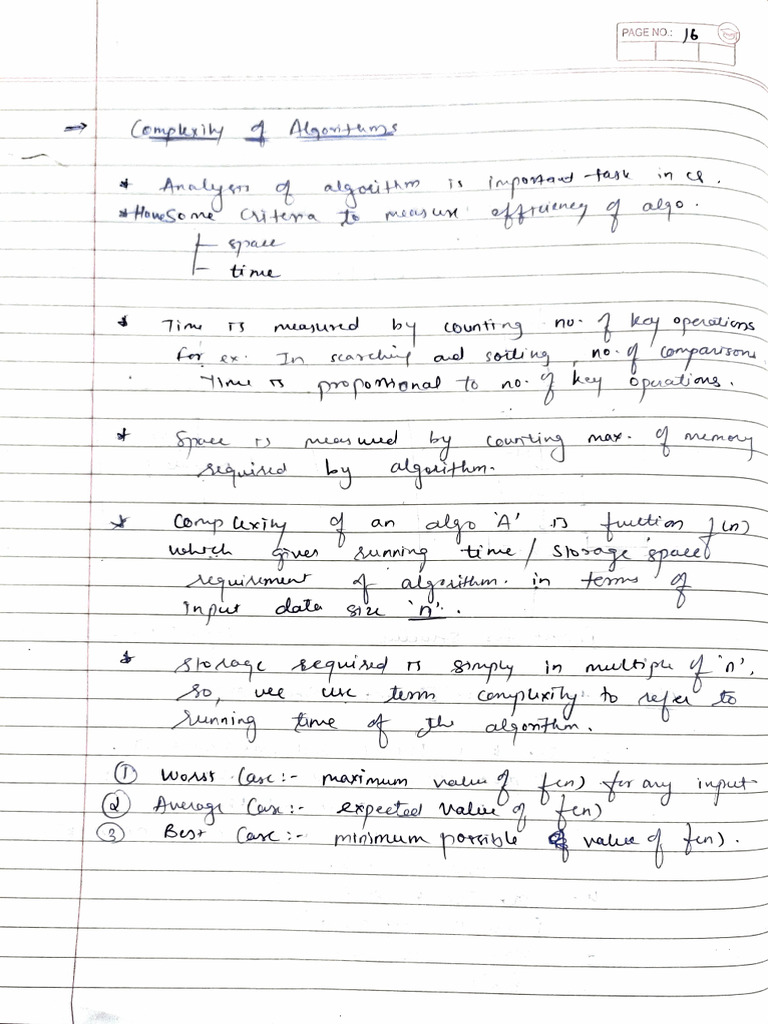 PAGE NO.: 16
→ Complexity of Algorithms
* Analysis of algorithm is important task in CS.
* Have Some Criteria to measure efficiency of algo.
space
time
* Time is measured by counting no. of key operations
for ex. In searching and sorting, no. of comparisons
Time is proportional to no. of key operations.
* Space is measured by counting max. of memory
required by algorithm.
* Complexity of an algo 'A' is function f(n)
which gives running time / storage space
requirement of algorithm. in terms of
input data size 'n'.
* Storage required is simply in multiple of 'n'.
so, we use term complexity to refer to
running time of the algorithm.
① Worst Case:- maximum value of f(n) for any input
② Average Case:- expected value of f(n)
③ Best Case:- minimum possible value of f(n).